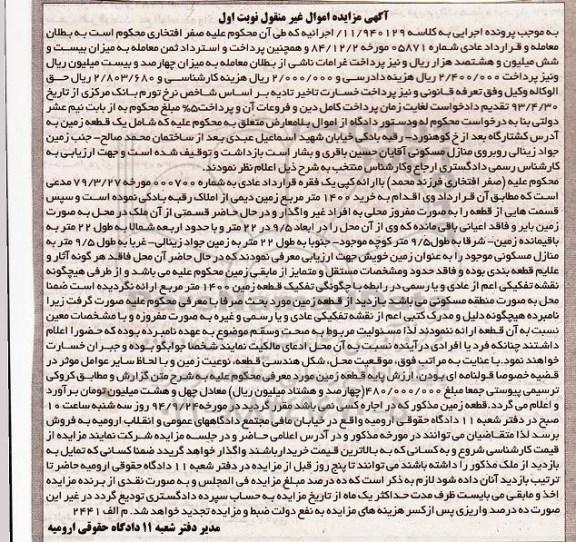 آگهی مزایده اموال غیر منقول نوبت اول
به موجب پرونده اجرایی به کلاسه ۱۱/۹۴۰۱۲۹/ اجرائیه که طی آن محکوم علیه صفر افتخاری محکوم است به بطلان
معامله و قرارداد عادی شماره ۰۵۸۷۱ مورخه ۸۴/۱۲/۲ و همچنین پرداخت و استرداد ثمن معامله به میزان بیست و
شش میلیون و هشتصد هزار ریال و نیز پرداخت غرامات ناشی از بطلان معامله به میزان چهارصد و بیست میلیون ریال
ونیز پرداخت ۲/۴۰۰/۰۰۰ ریال هزینه دادرسی و ۲/۰۰۰/۰۰۰ ریال هزینه کارشناسی و ۲/۸۰۳/۶۸۰ ریال حق
الوکاله وکیل وفق تعرفه قانونی و نیز پرداخت خسارت تاخیر تادیه بر اساس شاخص نرخ تورم بانک مرکزی از تاریخ
۹۳/۴/۳۰ تقدیم دادخواست لغایت زمان پرداخت کامل دین و فروعات آن و پرداخت۵% مبلغ محکوم به از بابت نیم عشر
دولتی بنا به درخواست محکوم له ودستور دادگاه از اموال بلامعارض متعلق به محکوم علیه که شامل یک قطعه زمین به
آدرس کشتارگاه بعد از خ کوهنورد- رقیه بادکی خیابان شهید اسماعیل عبدی بعد از ساختمان محمد صالح- جنب زمین
جواد زینالی روبروی منازل مسکونی آقایان حسین باقری و بشار است بازداشت و توقیف شده است و جهت ارزیابی به
کارشناس رسمی دادگستری ارجاع وکارشناس منتخب به شرح ذیل اعلام نظر نمودند.
محکوم علیه (صفر افتخاری فرزند محمد) باارائه کپی یک فقره قرارداد عادی به شماره ۰۰۰۷۰۰ مورخه ۷۹/۳/۲۷ مدعی
است که مطابق آن قرارداد وی اقدام به خرید ۱۴۰۰ متر مربع زمین دیمی از املاک رقبه بادکی نموده است و سپس
قسمت هایی از قطعه را به صورت مفروز محلی به افراد غیر واگذار و در حال حاضر قسمتی از آن ملک در محل به صورت
زمین بایر و فاقد اعیانی باقی مانده که وی از آن محل را در ابعاد ۹/۵ در ۲۲ متر و با حدود اربعه شمالا به طول ۲۲ متر به
باقیمانده زمین- شرقا به طول ۹/۵ متر کوچه موجود- جنوبا به طول ۲۲ متر به زمین جواد زینالی- غربا به طول ۹/۵ متر به
منازل مسکونی موجود را به عنوان زمین خویش جهت ارزیابی معرفی نمودند که در حال حاضر آن محل فاقد هر گونه آثار و
علایم قطعه بندی بوده و فاقد حدود ومشخصات مستقل و متمایز از مابقی زمین محکوم علیه می باشد و از طرفی هیچگونه
نقشه تفکیکی اعم از عادی و یا رسمی در رابطه با چگونگی تفکیک قطعه زمین ۱۴۰۰ متر مربع ارائه نگردیده است ضمنا
محل به صورت منطقه مسکونی می باشد بازدید از قطعه زمین مورد بحث صرفا با معرفی محکوم علیه صورت گرفت زیرا
نامبرده هیچگونه دلیل و مدرک کتبی اعم از نقشه تفکیکی عادی و یا رسمی و غیره به صورت مفروزه و با مشخصات معین
نسبت به آن قطعه ارائه ننمودند لذا مسئولیت مربوط به صحت وسقم موضوع به عهده نامبرده بوده که حضورا اعلام
داشتند چنانکه فرد یا افرادی درآینده نسبت به آن محل ادعای مالکیت نمایند شخصا جوابگو بوده و جبران خسارت
خواهند نمود.با عنایت به مراتب فوق، موقعیت محل، شکل هندسی قطعه، نوعیت زمین و با لحاظ سایر عوامل موثر در
قضیه خصوصا قولنامه ای بودن ارزش پایه قطعه زمین مورد معرفی محکوم علیه به شرح متن گزارش و مطابق کروکی
ترسیمی پیوستی جمعا مبلغ ۴۸۰/۰۰۰/۰۰۰(چهارصد و هشتاد میلیون ریال) معادل چهل و هشت میلیون تومان برآورد
و اعلام می گردد.قطعه زمین مذکور که در اجاره کسی می باشد مقرر گردید در مورخه۹۴/۷/۲۴ روز سه شنبه ساعت ۱۰
صبح در دفتر شعبه ۱۱ دادگاه حقوقی ارومیه واقع در خیابان مافی مجتمع دادگاههای عمومی و انقلاب ارومیه به فروش
برسد لذا متقاضیان می توانند در مورخه مذکور و در آدرس اعلامی حاضر و در جلسه مزایده شرکت نمایند مزایده از
قیمت کارشناسی شروع و به کسانی که به بالاترین قیمت خریدار باشند واگذار خواهد گردید ضمنا کسانی که تمایل به
بازدید از ملک مذکور را داشته باشند می توانند تا پنج روز قبل از مزایده در دفتر شعبه ۱۱ دادگاه حقوقی ارومیه حاضر تا
ترتیب بازدید آنان داده شود لازم به ذکر است که ده درصد مبلغ مزایده فی المجلس و به صورت نقدی از برنده مزایده
اخذ و مابقی می بایست ظرف مدت حداکثر یک ماه از تاریخ مزایده به حساب سپرده دادگستری تودیع گردد در غیر این
صورت ده درصد واریزی پس از کسر هزینه های مزایده به نفع دولت ضبط و مزایده تجدید خواهد شد. م الف ۲۴۴۱
مدیر دفتر شعبه ۱۱ دادگاه حقوقی ارومیه